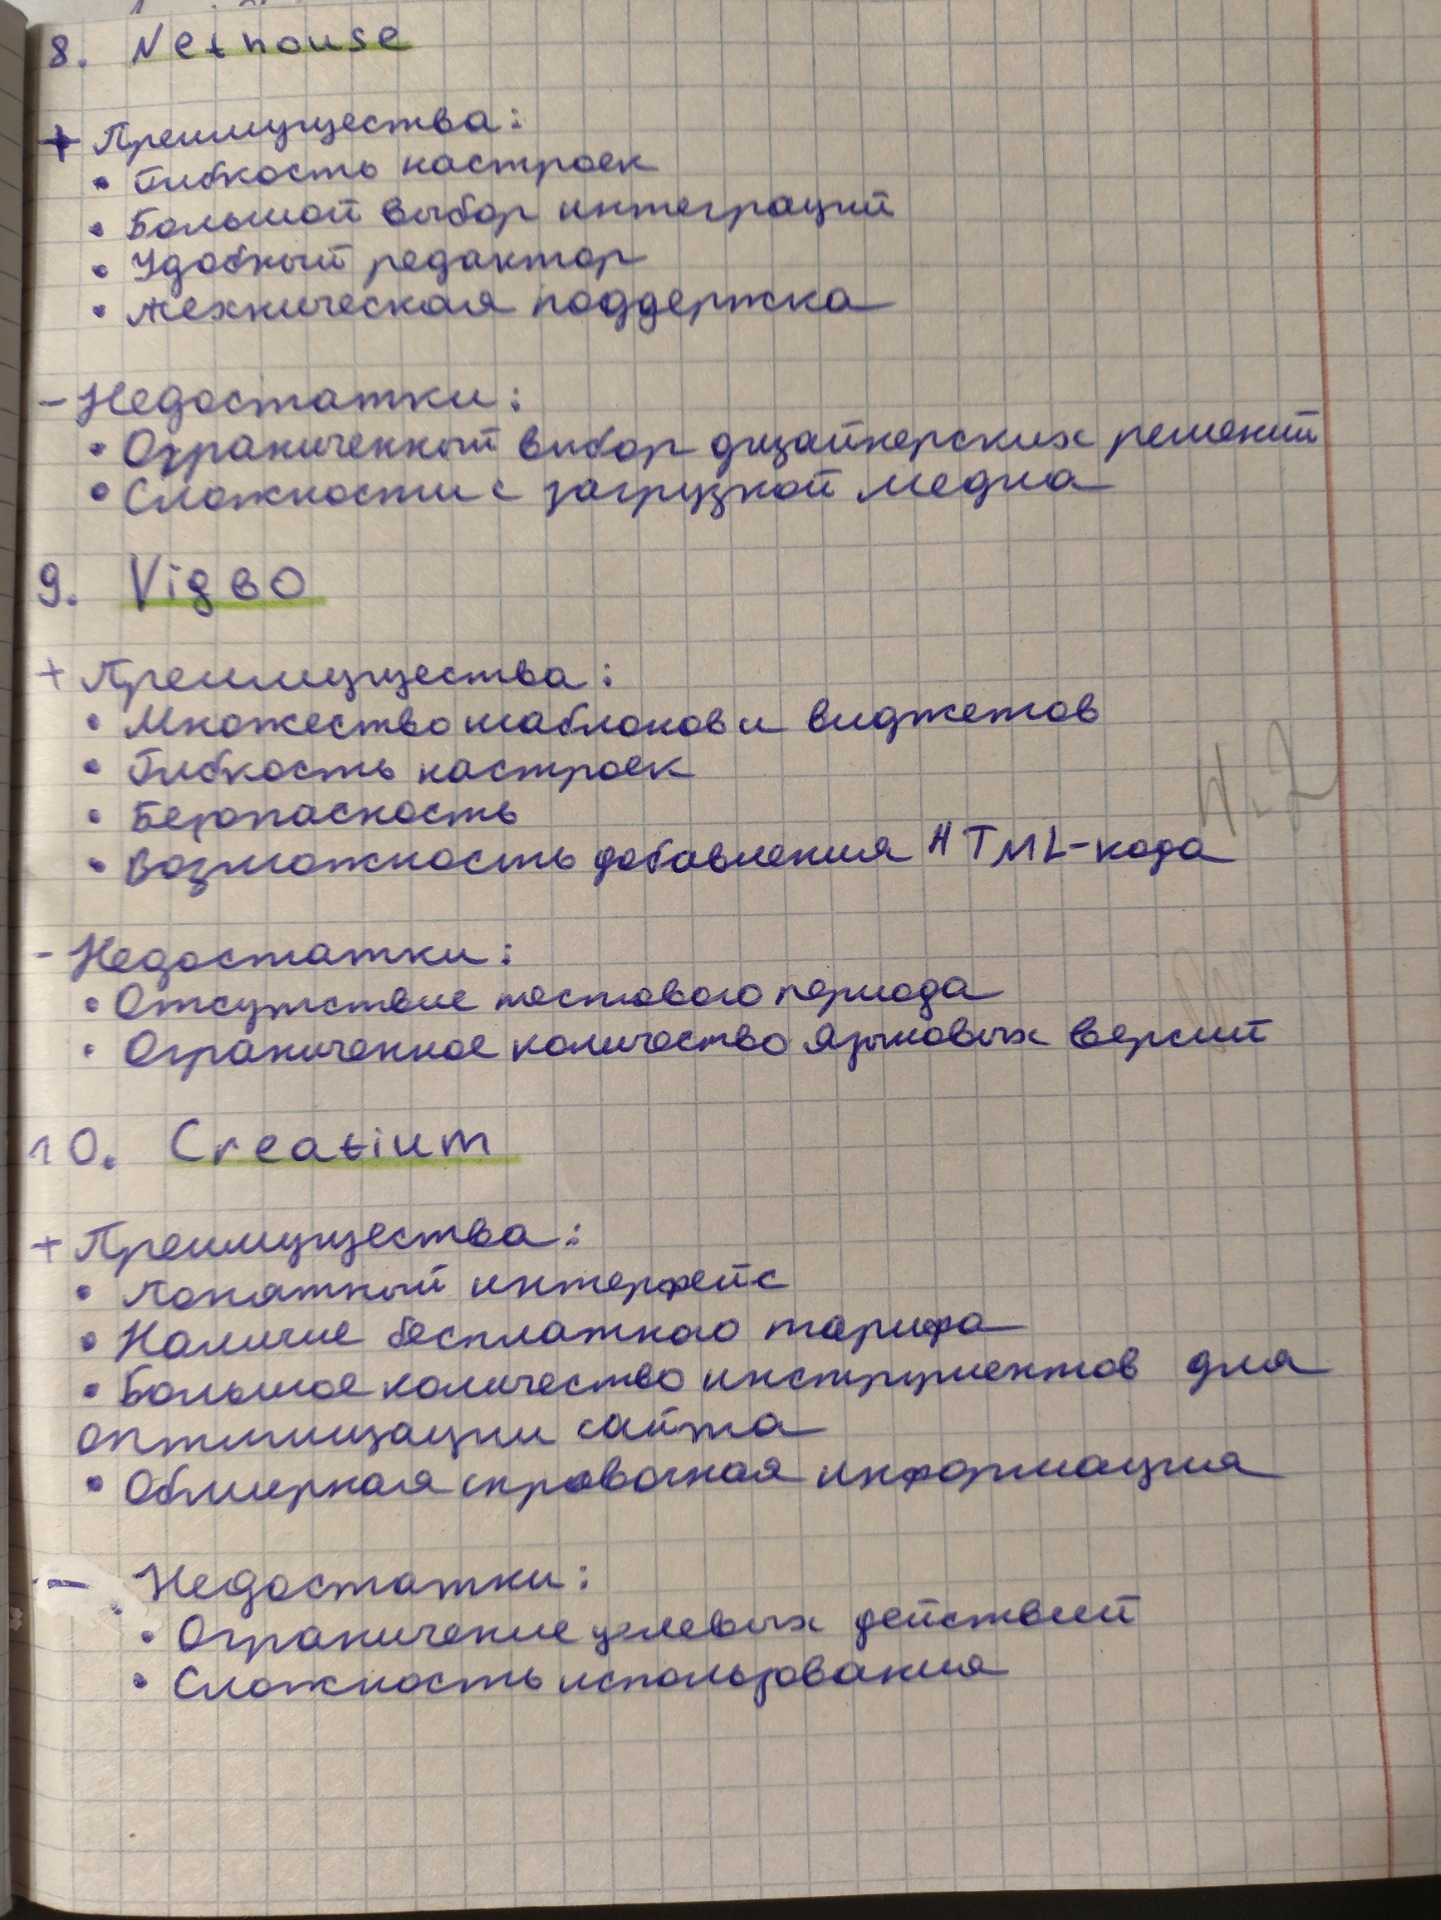 8. Nethouse
+ Преимущества:
• Гибкость настроек
• Большой выбор интеграций
• Удобный редактор
• техническая поддержка
- Недостатки:
• Ограниченный выбор дизайнерских решений
• Сложности с загрузкой медиа
9. Vigbo
+ Преимущества:
• Множество шаблонов и виджетов
• Гибкость настроек
• Безопасность
• Возможность добавления HTML-кода
- Недостатки:
• Отсутствие тестового периода
• Ограниченное количество языковых версий
10. Creatium
+ Преимущества:
• Понятный интерфейс
• Наличие бесплатного тарифа
• Большое количество инструментов для
оптимизации сайта
• Обширная справочная информация
- Недостатки:
• Ограничение целевых действий
• Сложность использования